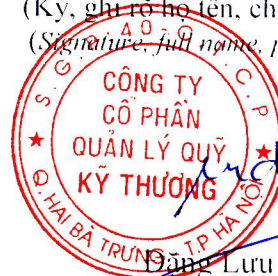 (Ký, ghi rõ họ tên, ch
(Signature, full name, p
S.G.P: 40-G C.P
CÔNG TY
CỔ PHẦN
QUẢN LÝ QUỸ
KỸ THƯƠNG
Q. HAI BÀ TRƯNG - T.P HÀ NỘI
Đặng Lưu